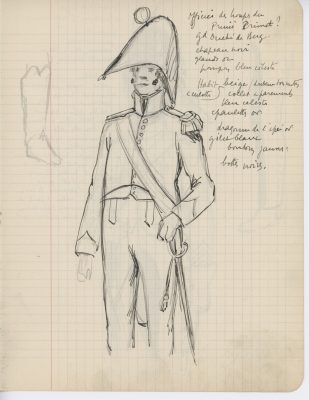 officier de troupes du
Prince Primat ?
gd Duché de Berg
chapeau noir
glands or
pompon bleu céleste
Habit beige, boutonnets
culottes collet & parements
bleu céleste
épaulettes or
dragonne de l'épée or
gilet blanc
boutons jaunes
bottes noires.